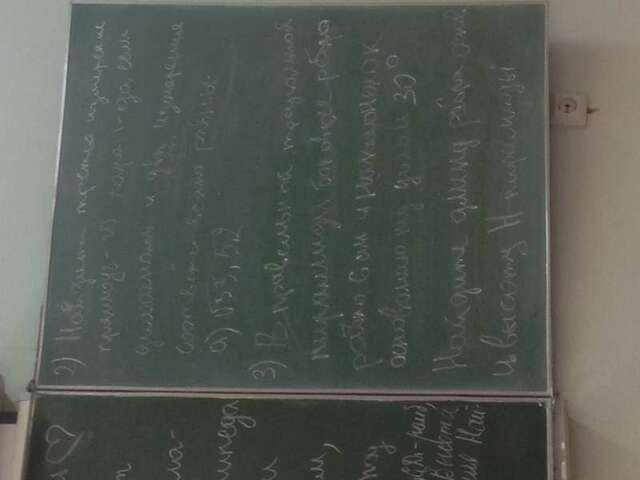 я ♡
т
ла-
ипеда
и
м,
ну
ромб,
высота
Най-
2) Найдите третье измерение
прямоуг-го пара-п-да, если
диагональ и два измерения
соответственно равны:
а) √33, 5, 2
3) В правильной треугольной
пирамиде боковое ребро
равно 6 см и наклонено к
основанию под углом 30°
Найдите длину ребра осно
и высоту H пирамиды